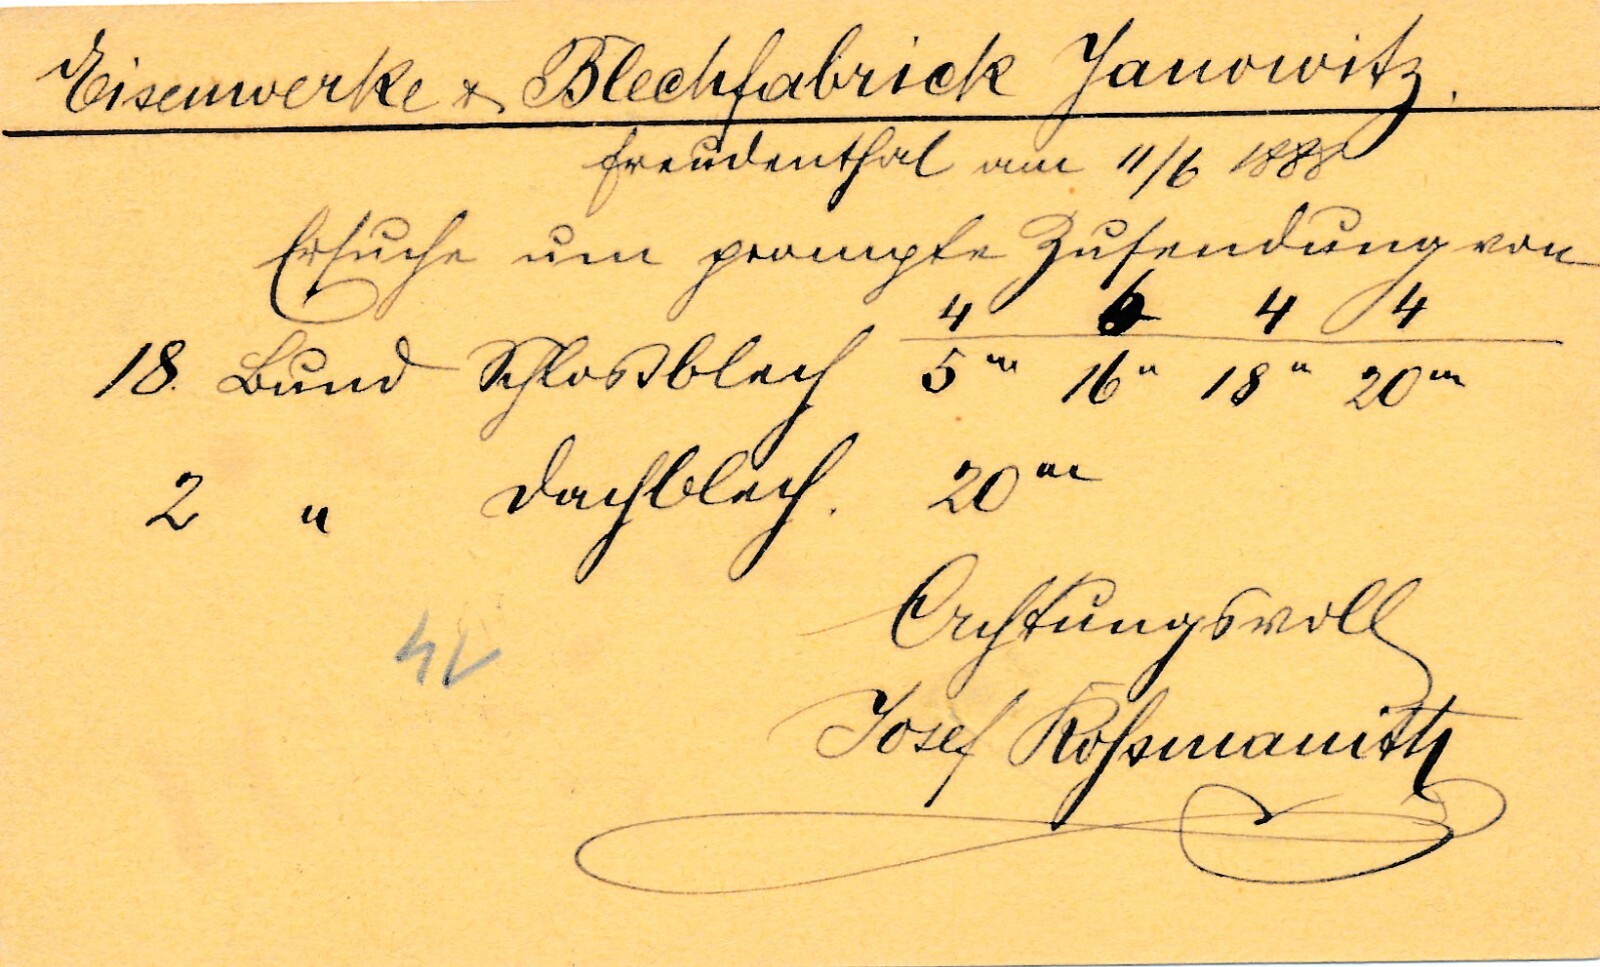 Eisenwerke & Blechfabrick Janowitz.
Freudenthal am 11/6 1888
Ersuche um prompte Zusendung von
4 6 4 4
18. Bund Schloßblech 5" 16" 18" 20"
2 " Dachblech. 20"
Achtungsvoll
Josef Roßmanith